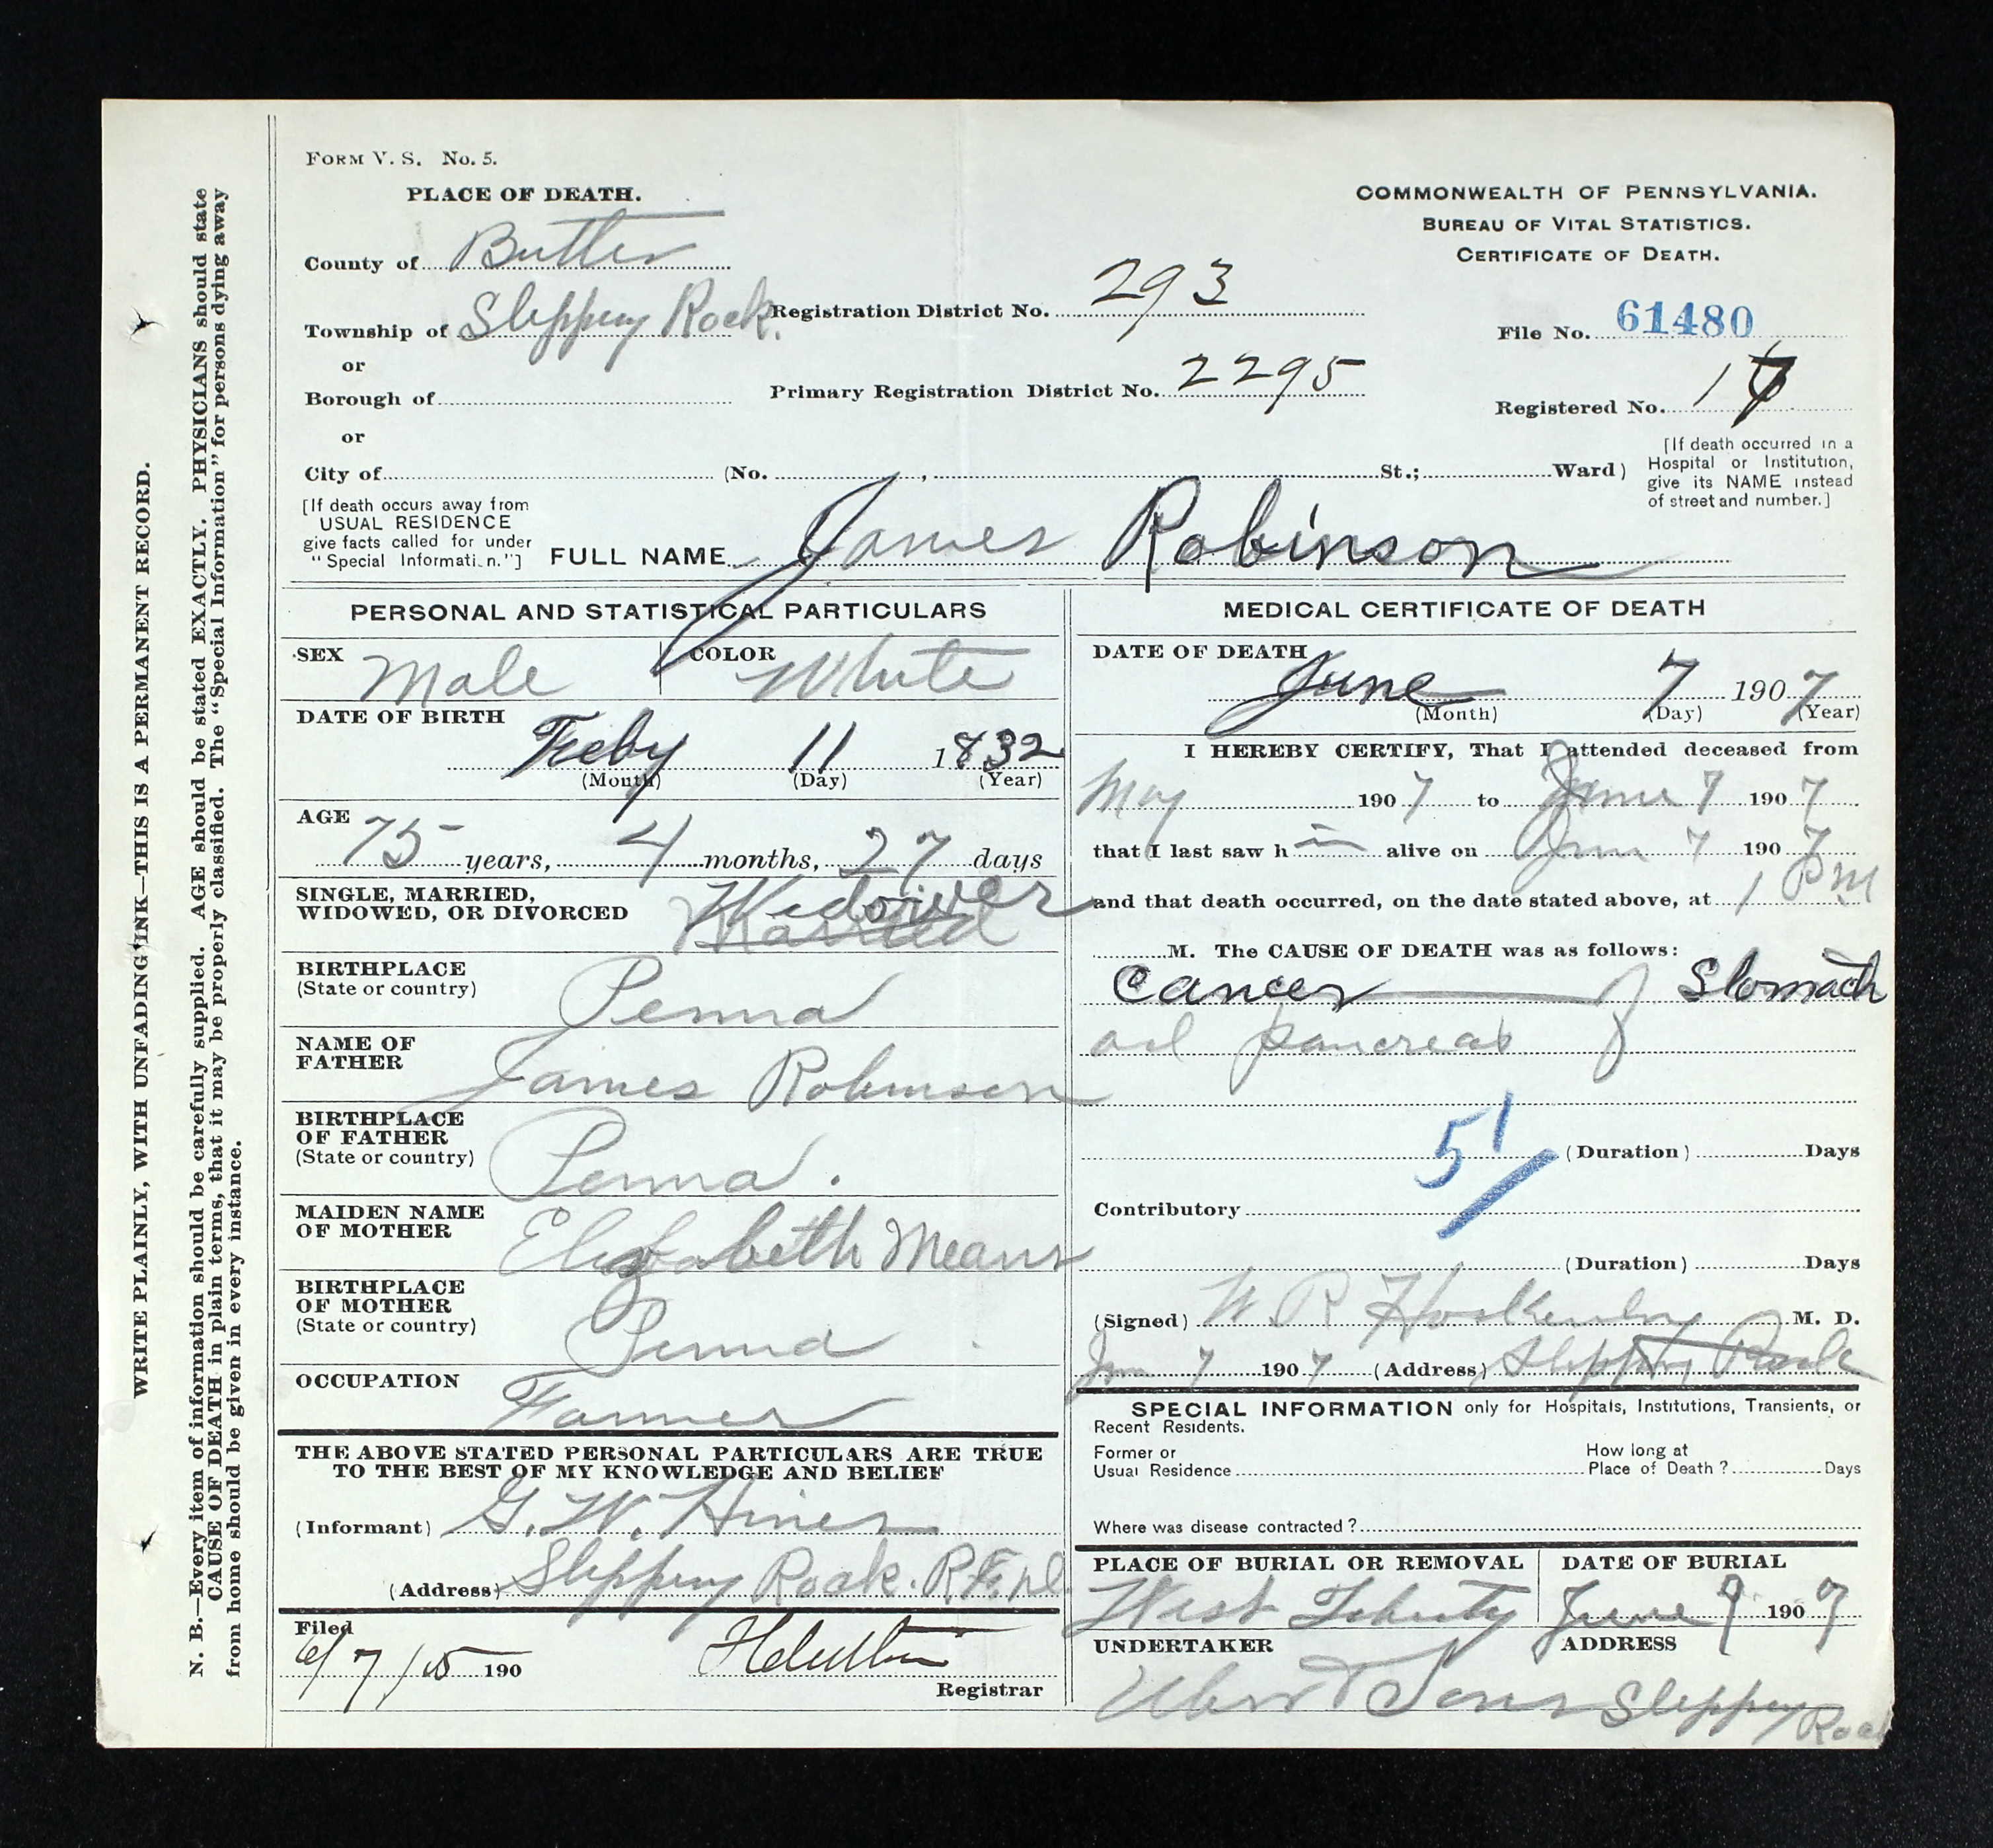 FORM V. S. No. 5.
PLACE OF DEATH.
COMMONWEALTH OF PENNSYLVANIA.
BUREAU OF VITAL STATISTICS.
CERTIFICATE OF DEATH.
County of Butler
Township of Slippery Rock.
Registration District No. 293
File No. 61480
or
Borough of
Primary Registration District No. 2295
Registered No. 17
or
City of (No. , St.; Ward)
[If death occurred in a
Hospital or Institution,
give its NAME instead
of street and number.]
[If death occurs away from
USUAL RESIDENCE
give facts called for under
"Special Informati n."]
FULL NAME James Robinson
PERSONAL AND STATISTICAL PARTICULARS
SEX Male COLOR White
DATE OF BIRTH
Feby 11 1832
(Month) (Day) (Year)
AGE
75 years, 4 months, 27 days
SINGLE, MARRIED,
WIDOWED, OR DIVORCED
Widower
Married
BIRTHPLACE
(State or country)
Penna
NAME OF
FATHER
James Robinson
BIRTHPLACE
OF FATHER
(State or country)
Penna.
MAIDEN NAME
OF MOTHER
Elizabeth Means
BIRTHPLACE
OF MOTHER
(State or country)
Penna
OCCUPATION
Farmer
THE ABOVE STATED PERSONAL PARTICULARS ARE TRUE
TO THE BEST OF MY KNOWLEDGE AND BELIEF
(Informant) G. W. Hines
(Address) Slippery Rock. R.F.D.
Filed
6/7/ 190
Registrar
MEDICAL CERTIFICATE OF DEATH
DATE OF DEATH
June 7 1907
(Month) (Day) (Year)
I HEREBY CERTIFY, That I attended deceased from
May 1907 to June 7 1907
that I last saw h im alive on June 7 1907
and that death occurred, on the date stated above, at 1 PM
M. The CAUSE OF DEATH was as follows:
Cancer of Stomach
and pancreas
51
(Duration) Days
Contributory
(Duration) Days
(Signed) W. R. Hockenberry M. D.
Jun 7 1907 (Address) Slippery Rock
SPECIAL INFORMATION only for Hospitals, Institutions, Transients, or
Recent Residents.
Former or
Usual Residence
How long at
Place of Death? Days
Where was disease contracted?
PLACE OF BURIAL OR REMOVAL
West Liberty
DATE OF BURIAL
June 9 1907
UNDERTAKER
Uber & Sons
ADDRESS
Slippery Rock
WRITE PLAINLY, WITH UNFADING INK—THIS IS A PERMANENT RECORD.
N. B.—Every item of information should be carefully supplied. AGE should be stated EXACTLY. PHYSICIANS should state
CAUSE OF DEATH in plain terms, that it may be properly classified. The "Special Information" for persons dying away
from home should be given in every instance.